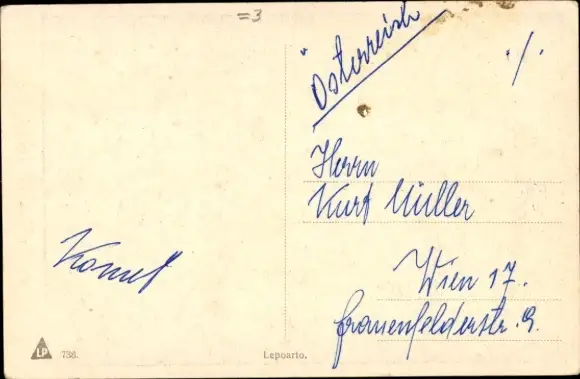 =3
"Österreich ./.
Herrn
Kurt Müller
Komet
Wien 17.
Frauenfelderstr. 9.
LP 738.
Lepoarto.